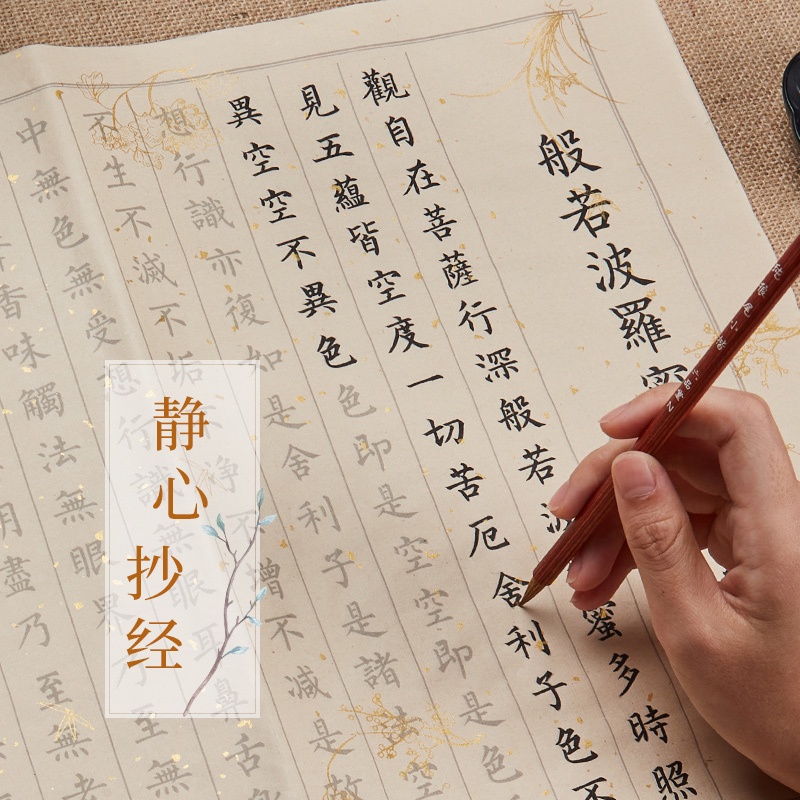 般若波羅
觀自在菩薩行深般若波
蜜多時照
見五蘊皆空度一切苦厄舍利子色不
異空空不異色色即是空空即是色
想行識亦復如是舍利子是諸法空
不生不滅不垢不淨不增不減是故
中無色無受想行識無眼耳鼻舌
香味觸法無眼界乃至無
明盡乃至無老
静心
抄经